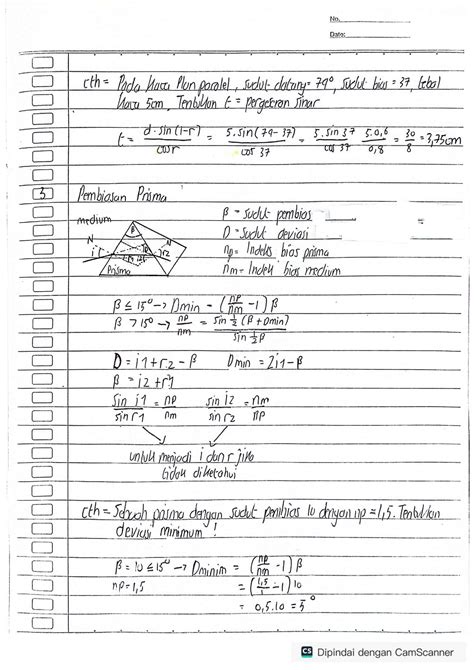 No.
Date:
cth = Pada kaca Plan paralel, sudut datang = 79°, sudut bias = 37, tebal
kaca 5cm, Tentukan t = pergeseran sinar
t = d.sin(i-r) / cos r = 5.sin(79-37) / cos 37 = 5.sin 37 / cos 37 = 5.0,6 / 0,8 = 30 / 8 = 3,75cm
3 Pembiasan Prisma
medium
β = sudut pembias =
D = sudut deviasi
np = Indeks bias prisma
nm = Indek bias medium
N
β
N
i1
r2
Prisma
β ≤ 15° → Dmin = (np/nm - 1) β
β > 15° → np/nm = sin ½ (β + Dmin) / sin ½ β
D = i1 + r2 - β Dmin = 2i1 - β
β = i2 + r1
sin i1 / sin r1 = np / nm sin i2 / sin r2 = nm / np
untuk menjadi i dan r jika
tidak diketahui
cth = Sebuah prisma dengan sudut pembias 10 dengan np = 1,5. Tentukan
deviasi minimum !
β = 10 ≤ 15° → Dminim = (np/nm - 1) β
np = 1,5 = (1,5/1 - 1) 10
= 0,5.10 = 5°
CS Dipindai dengan CamScanner